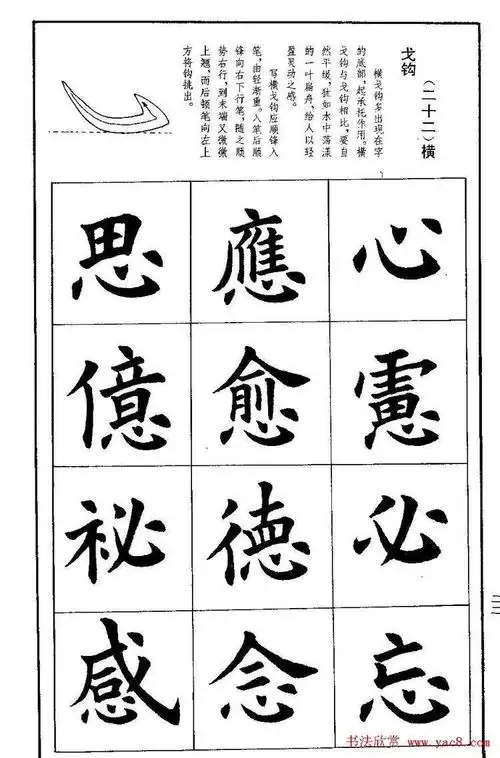 （二十二）横
戈钩
横戈钩多出现在字
的底部，起承托作用。横
戈钩与戈钩相比，要自
然平缓，犹如水中荡漾
的一叶扁舟，给人以轻
盈灵动之感。
写横戈钩应顺锋入
笔，由轻渐重。入笔后顺
锋向右下行笔，随之顺
势右行，到末端又微微
上翘，而后领笔向左上
方将钩挑出。
心憲必忘
應愈德念
思億祕感
书法欣赏 www.yac8.com